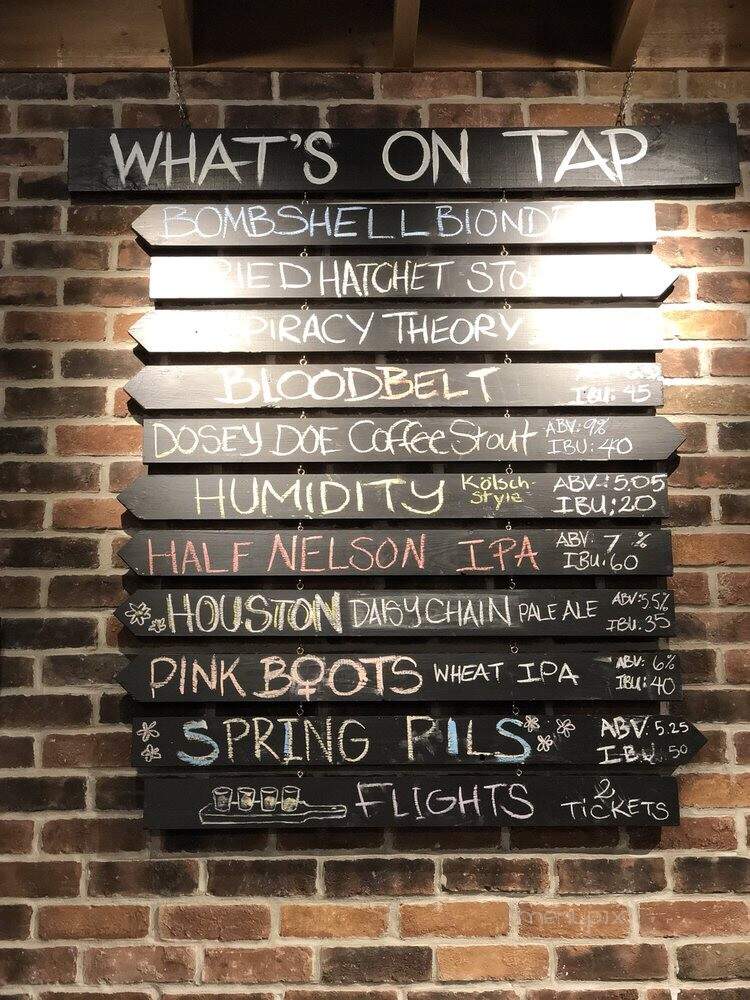 WHAT'S ON TAP
BOMBSHELL BLOND
IED HATCHET STO
PIRACY THEORY
BLOODBELT IBU: 45
DOSEY DOE Coffee Stout ABV: 9% IBU: 40
HUMIDITY Kölsch-Style ABV: 5.05 IBU: 20
HALF NELSON IPA ABV: 7 % IBU: 60
HOUSTON DAISYCHAIN PALE ALE ABV: 5.5% IBU: 35
PINK BOOTS WHEAT IPA ABV: 6% IBU: 40
SPRING PILS ABV: 5.25 IBU: 50
FLIGHTS 2 TICKETS